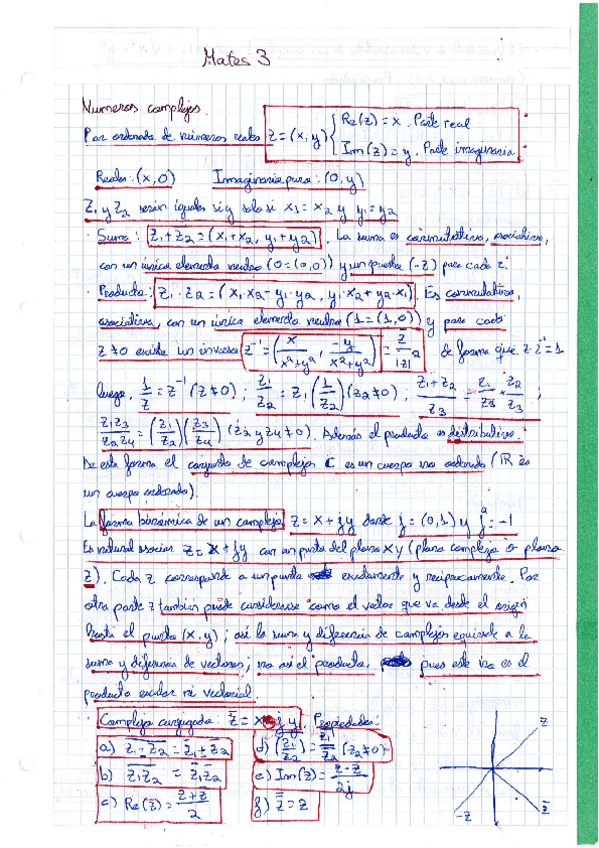 Mates 3
Numeros complejos.
Par ordenado de números reales z = (x, y) { Re(z) = x. Parte real
Im(z) = y. Parte imaginaria
Reales: (x, 0) Imaginario puro: (0, y)
Z₁ y Z₂ serán iguales si y solo si x₁ = x₂ y y₁ = y₂
· Suma: Z₁+Z₂ = (x₁+x₂, y₁+y₂). La suma es conmutativa, asociativa,
con un único elemento neutro (0 = (0,0)) y un opuesto (-z) para cada z.
· Producto: Z₁·Z₂ = (x₁x₂ - y₁·y₂, y₁·x₂ + y₂·x₁). Es conmutativo,
asociativo, con un único elemento neutro (1 = (1,0)) y para cada
z ≠ 0 existe un inverso z⁻¹ = (x/(x²+y²), -y/(x²+y²)) = z̄/|z|² de forma que z·z⁻¹ = 1
luego, 1/z = z⁻¹ (z≠0); z₁/z₂ = z₁(1/z₂) (z₂≠0); (z₁+z₂)/z₃ = z₁/z₃ + z₂/z₃;
z₁z₃/z₂z₄ = (z₁/z₂)(z₃/z₄) (z₂ y z₄ ≠ 0). Además el producto es distributivo.
De esta forma el conjunto de complejos C es un cuerpo no ordenado (ℝ es
un cuerpo ordenado).
La forma binómica de un complejo z = x + jy donde j = (0,1) y j² = -1
Es natural asociar z = x + jy con un punto del plano XY (plano complejo o plano
z). Cada z corresponde a un punto exactamente y recíprocamente. Por
otra parte z también puede considerarse como el vector que va desde el origen
hasta el punto (x, y); así la suma y diferencia de complejos equivale a la
suma y diferencia de vectores, no así el producto, pues este no es el
producto escalar ni vectorial.
· Complejo conjugado: z̄ = x - jy. Propiedades:
a) \overline{z₁ - z₂} = z̄₁ + z̄₂ d) \overline{(z₁/z₂)} = z̄₁/z̄₂ (z₂≠0)
b) \overline{z₁z₂} = z̄₁z̄₂ e) Im(z) = (z - z̄)/2j
c) Re(z) = (z+z̄)/2 f) z̿ = z
z
-z
z̄